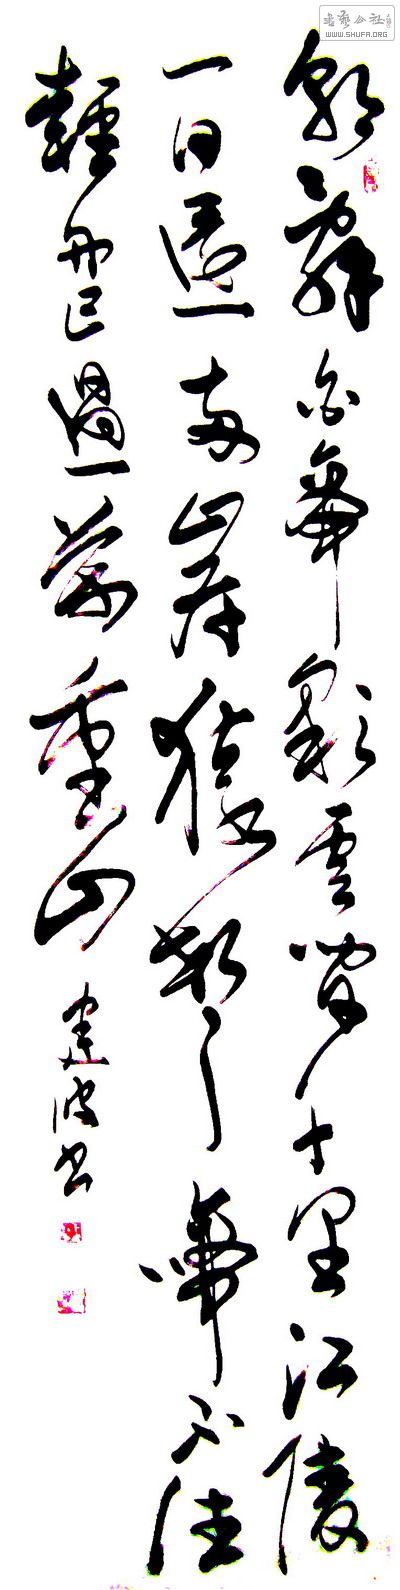 書藝公社
WWW.SHUFA.ORG
朝辭白帝彩雲間千里江陵
一日還兩岸猿聲啼不住
輕舟已過萬重山
建波书